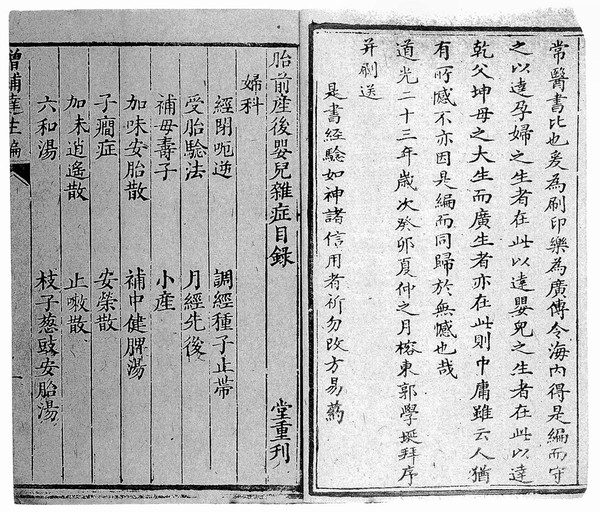 常醫書比也爰為刷印樂為廣傳令海內得是編而守
之以達孕婦之生者在此以達嬰兒之生者在此以達
乾父坤母之大生而廣生者亦在此則中庸雖云人猶
有所憾不亦因是編而同歸於無憾也哉
道光二十三年歲次癸卯夏仲之月榕東郭學埏拜序
并刷送
是書經驗如神諸信用者祈勿改方易藥
胎前產後嬰兒雜症目錄 堂重刊
婦科
經閉呃逆 調經種子止帶
受胎驗法 月經先後
補母壽子 小產
加味安胎散 補中健脾湯
子癇症 安榮散
加未逍遙散 止嗽散
六和湯 枝子葱豉安胎湯
增補達生編